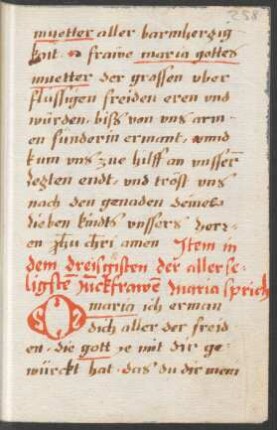 258
muetter aller barmhertzig
kait. O frawe maria gottes
muetter der grossen vber
flüssigen freiden eren vnd
würden. biss von vns arm-
en sunderin ermant. vnnd
kum vns zue hilff an vnsserm
letzten endt. vnd tröst vns
nach den genaden deines
lieben kindts vnssers herz-
en jhu chri amen Item in
dem dreisigisten der allerse-
ligste Juckfrawē Maria sprich
O maria ich erman
dich aller der freid
en. die gott ye mit dir ge-
würckt hat. das du dir mein